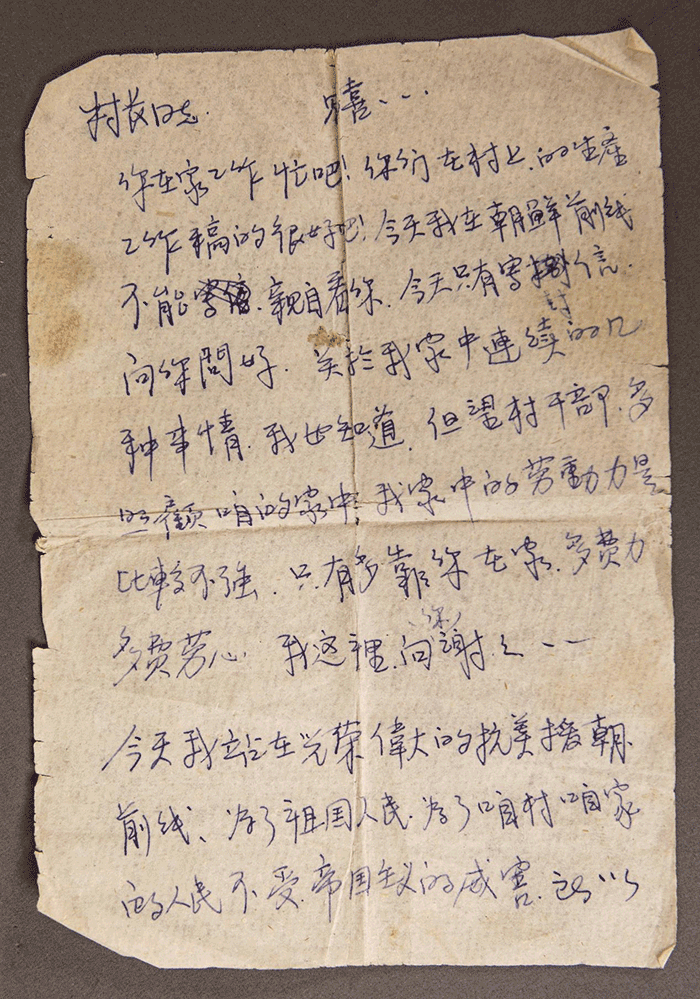 村长同志. 只喜、..
你在家工作忙吧！你们在村上.的生產
工作稿的很好吧！今天我在朝鲜前线
不能.親自看你.今天只有寄封信.
向你問好.关於我家中連续的几
种事情.我也知道.但望村干部.多
照顧咱的家中.我家中的劳動力是
比較不强.只有多靠你在家.多费力
多费劳心 我这裡.向(你)謝之..
今天我站在光荣偉大的抗美援朝.
前线、为了祖国人民.为了咱村咱家
的人民不受.帝国主义的威害.所以